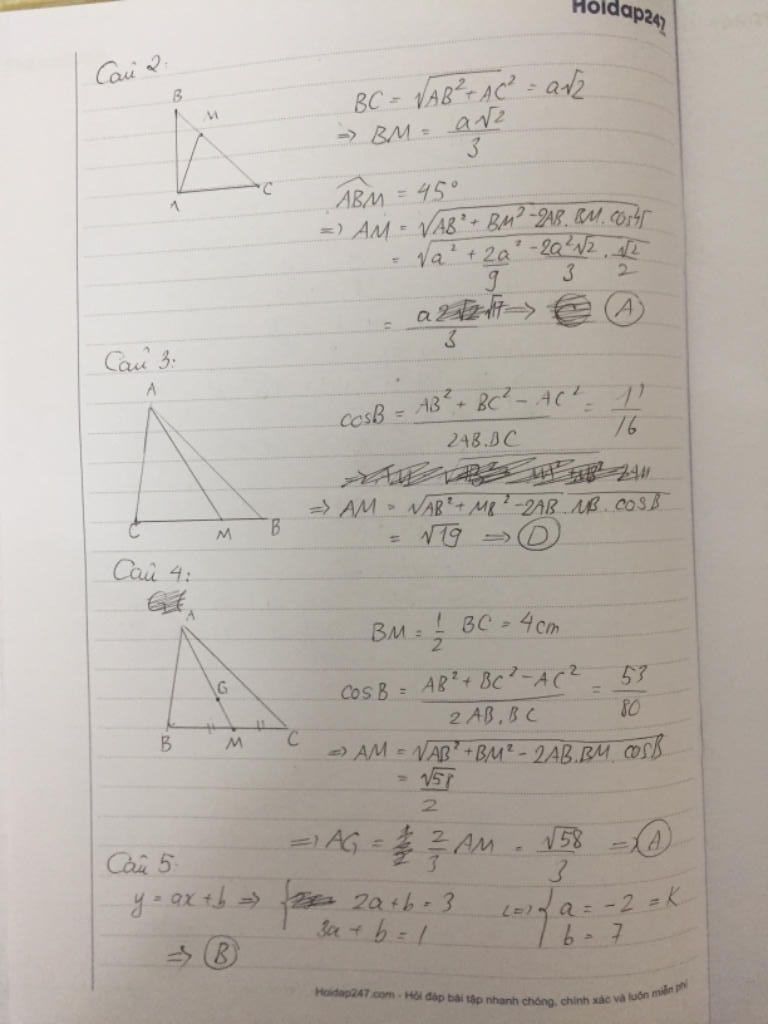 Hoidap247
Câu 2:
B
M
A
C
BC = √(AB² + AC²) = a√2
⇒ BM = a√2/3
ABM = 45°
⇒ AM = √(AB² + BM² - 2AB.BM.cos45)
= √(a² + 2a²/9 - 2a²√2/3 . √2/2)
= a√17/3 ⇒ A
Câu 3:
A
C
M
B
cosB = (AB² + BC² - AC²)/(2AB.BC) = 11/16
⇒ AM = √(AB² + MB² - 2AB.MB.cosB)
= √19 ⇒ D
Câu 4:
A
G
B
M
C
BM = 1/2 BC = 4cm
cosB = (AB² + BC² - AC²)/(2AB.BC) = 53/80
⇒ AM = √(AB² + BM² - 2AB.BM.cosB)
= √58/2
⇒ AG = 2/3 AM = √58/3 ⇒ A
Câu 5
y = ax + b ⇒ { 2a + b = 3 <=> { a = -2 = K
3a + b = 1 b = 7
⇒ B
Hoidap247.com - Hỏi đáp bài tập nhanh chóng, chính xác và luôn miễn phí